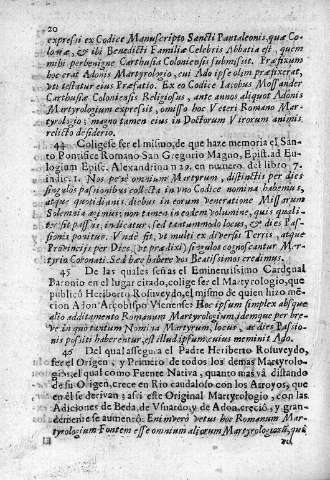 20
expressi ex Codice Manuscripto Sancti Pantaleonis, quæ Co-
loniæ, & ibi Benedicti Familiæ Celebris Abbatia est, quem
mihi perbenigne Carthusia Coloniensis submisit. Præfixum
hoc erat Adonis Martyrologio, cui Ado ipse olim præfixerat,
vti testatur eius Præfatio. Ex eo Codice Iacobus Mosander
Carthusiæ Coloniensis Religiosus, ante annos aliquot Adonis
Martyrologium expressit, omisso hoc Veteri Romano Mar-
tyrologio; magno tamen eius in Doctorum Virorum animis
relicto desiderio.
44 Coligese ser el mismo, de que haze memoria el San-
to Pontifice Romano San Gregorio Magno, Epist. ad Eu-
logium Episc. Alexandrinum 29. en numero. del libro 7.
indict. 1. Nos penè omnium Martyrum, distinctis per dies
singulos passionibus collecta in vno Codice nomina habemus,
atque quotidianis diebus in eorum veneratione Missarum
Solemnia agimus; non tamen in eodem volumine, quis quali-
ter sit passus, indicatur, sed tantummodo locus, & dies Pas-
sionis ponitur. Vnde fit, vt multi ex diversis Terris, atque
Provincijs per Dies (vt prædixi) singulos cognoscantur Mar-
tyrio Coronati. Sed hæc habere vos Beatissimos credimus.
45 De las quales señas el Eminentissimo Cardenal
Baronio en el lugar citado, colige ser el Martyrologio, que
publicó Heriberto Rosuveydo, el mismo de quien hizo men-
cion Adon Arçobispo Vienense: Hoc ipsum simplex absque
alio additamento Romanum Martyrologium, idemque per bre-
ve in quo tantum Nomina Martyrum, locus, ac dies Passio-
nis positi haberentur, est illud ipsum, cuius meminit Ado.
46 Del qual assegura el Padre Heriberto Rosuveydo,
ser el Origen, y Primero de todos los demas Martyrolo-
gios, el qual como Fuente Nativa, quanto mas vá distando
de su Origen, crece en Rio caudaloso con los Arroyos, que
en èl se derivan; assi este Original Martyrologio, con las
Adiciones de Beda, de Vsuardo, y de Adon, creció, y gran-
demente se aumentò: Enimverò vetus hoc Romanum Mar-
tyrologium Fontem esse omnium aliorum Martyrologiorū, qui
ad